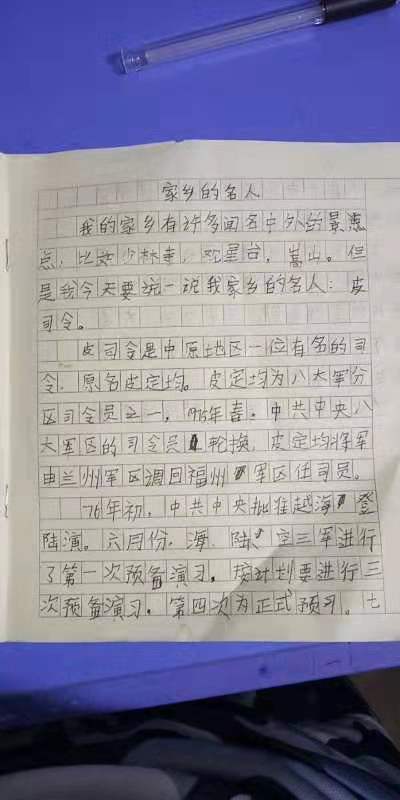 家乡的名人
我的家乡有许多闻名中外的景
点,比如少林寺,观星台,嵩山。但
是我今天要说一说我家乡的名人:皮
司令。
皮司令是中原地区一位有名的司
令,原名皮定均。皮定均为八大军分
区司令员之一,1975年春。中共中央八
大军区的司令员轮换,皮定均将军
由兰州军区调回福州军区任司员。
76年初,中共中央批准越海登
陆演。六月份,海、陆、空三军进行
了第一次预备演习,按计划要进行三
次预备演习。第四次为正式预习。七